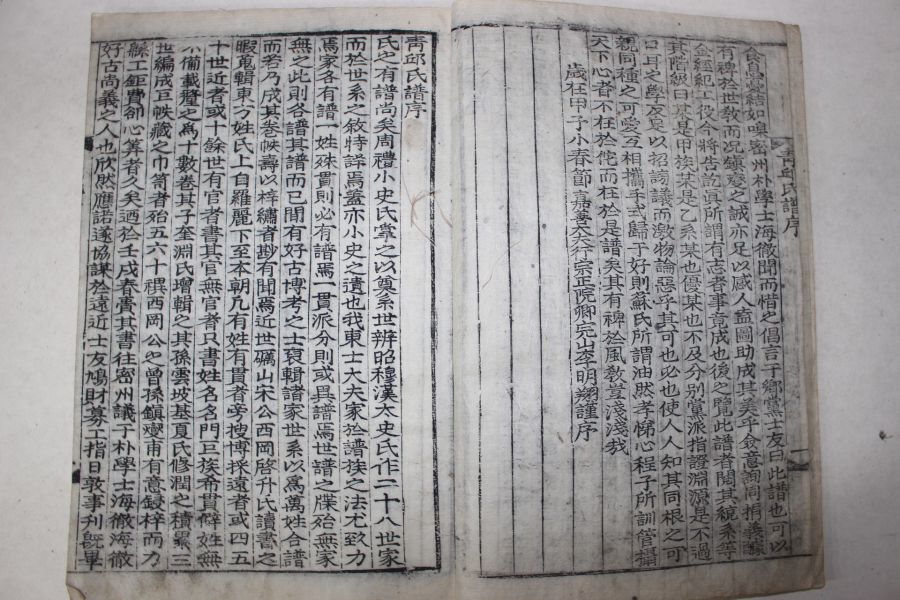 食息憂結如噢密州朴學士海徹聞而惜之倡言于鄉黨士友曰此譜也可以
有裨於世敎而况鎭燮之誠亦足以感人盍圖助成其美乎僉意詢同捐義醵
金經紀工役今將告訖眞所謂有志者事竟成也後之覽此譜者閱其統系等
其階級曰某是甲族某是乙系某也優某也不及分別黨派指證淵源是不過
口耳之學矣夏以招謗議而激物論惡乎其可也必也使人人知其同根之可
親同種之可愛互相攜手式歸于好則蘇氏所謂油然孝悌心程子所訓管攝
天下心者不在於佗而在於是譜矣其有裨於風敎豈淺淺哉
歲在甲子小春節嘉善大夫行宗正院卿完山李明翔謹序
靑邱氏譜序
靑邱氏譜序
氏之有譜尚矣周禮小史氏掌之以奠系世辨昭穆漢太史氏作二十八世家
而於世系之敘特詳焉蓋亦小史之遺也我東士大夫家於譜族之法尤致力
焉家各有譜一姓殊貫則必有譜焉一貫派分則或異譜焉世譜之牒殆無家
無之此則各譜其譜而已間有好古博考之士裒輯諸家世系以爲萬姓合譜
而若乃成其卷帙壽以梓繡者尠有聞焉近世礪山宋公西岡啓升氏讀書之
暇蒐輯東方姓氏上自羅麗下至本朝凡有姓有貫者旁搜博採遠者或四五
十世近者或十餘世有官者書其官無官者只書姓名名門巨族希貫僻姓無
不備載釐之爲十數卷其子奎淵氏增輯之其孫雲坡基夏氏修潤之積累三
世編成巨帙藏之巾笥者殆五六十禩西岡公之曾孫鎭燮甫有意鋟梓而力
緜工鉅費卻心筭者久矣迺於壬戌春賷其書往密州議于朴學士海徹海徹
好古尚義之人也欣然應諾遂協謀於遠近士友鳩財募工指日敦事刊旣畢